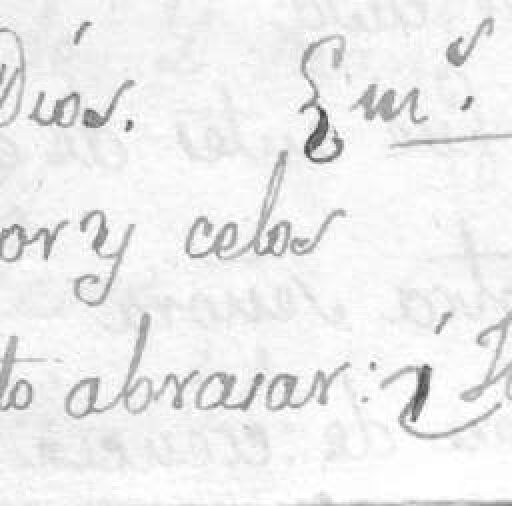 Diós. Em.^s
or y celos
to abrasar: ¡